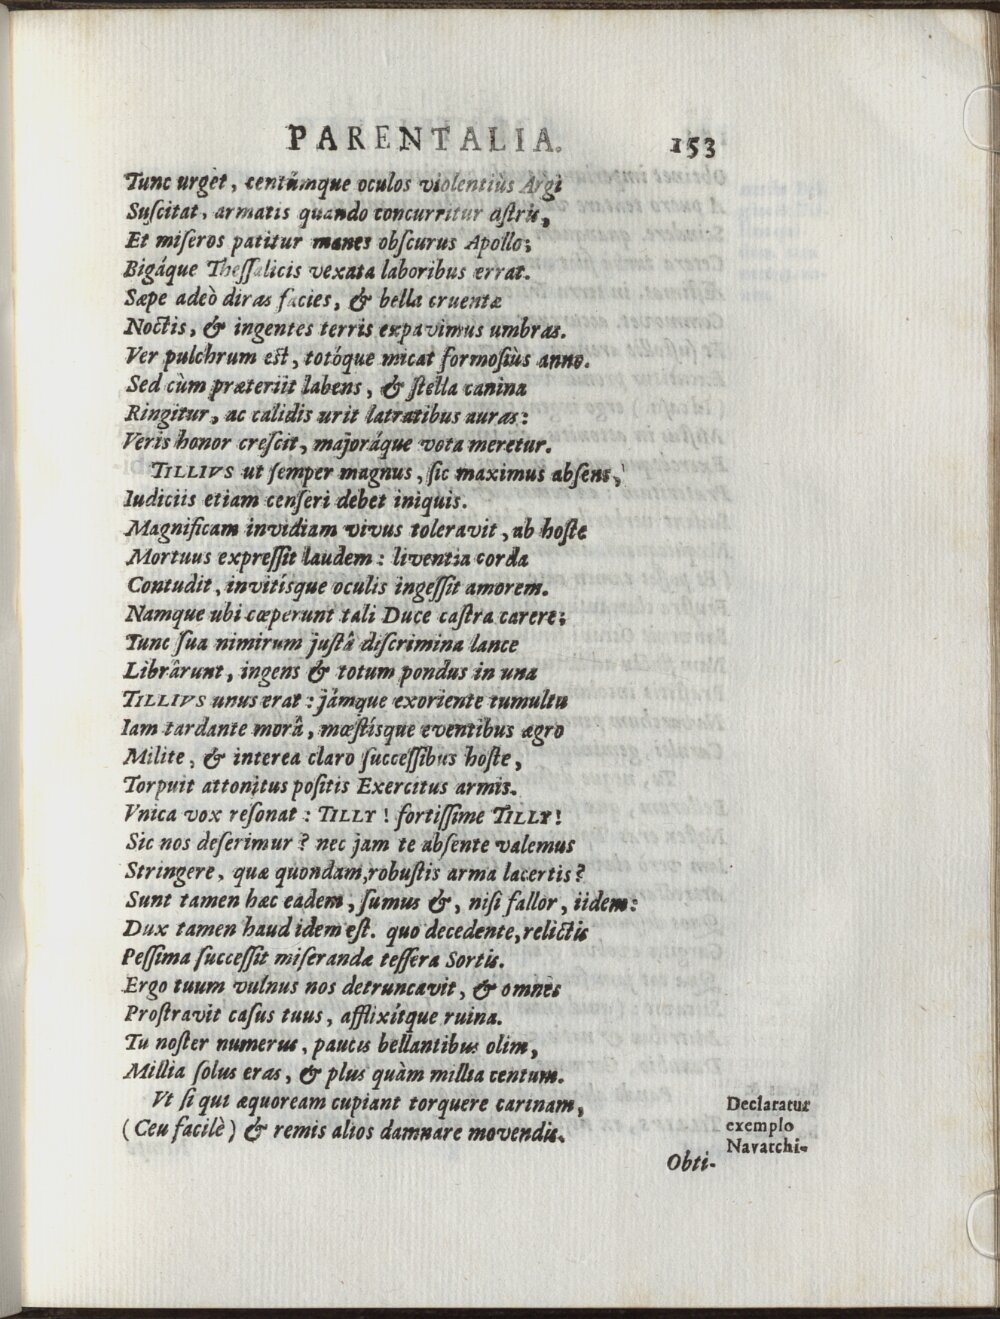 PARENTALIA. 153
Tunc urget, centúmque oculos violentiùs Argi
Suscitat, armatis quando concurritur astris,
Et miseros patitur manes obscurus Apollo;
Bigáque Thessalicis vexata laboribus errat.
Sæpe adeò diras facies, & bella cruentæ
Noctis, & ingentes terris expavimus umbras.
Ver pulchrum est, totóque micat formosiùs anno.
Sed cùm præteriit labens, & stella canina
Ringitur, ac calidis urit latratibus auras:
Veris honor crescit, majoráque vota meretur.
TILLIVS ut semper magnus, sic maximus absens,
Iudiciis etiam censeri debet iniquis.
Magnificam invidiam vivus toleravit, ab hoste
Mortuus expressit laudem: liventia corda
Contudit, invitísque oculis ingessit amorem.
Namque ubi cœperunt tali Duce castra carere;
Tunc sua nimirum justâ discrimina lance
Librârunt, ingens & totum pondus in una
TILLIVS unus erat: jámque exoriente tumultu
Iam tardante morâ, mœstísque eventibus ægro
Milite, & interea claro successibus hoste,
Torpuit attonitus positis Exercitus armis.
Vnica vox resonat: TILLY! fortissime TILLY!
Sic nos deserimur? nec jam te absente valemus
Stringere, quæ quondam, robustis arma lacertis?
Sunt tamen hæc eadem, sumus &, nisi fallor, iidem:
Dux tamen haud idem est. quo decedente, relictis
Pessima successit miserandæ tessera Sortis.
Ergo tuum vulnus nos detruncavit, & omnes
Prostravit casus tuus, afflixítque ruina.
Tu noster numerus, paucis bellantibus olim,
Millia solus eras, & plus quàm millia centum.
Vt si qui æquoream cupiant torquere carinam,
(Ceu facilè) & remis alios damnare movendis.
Declaratur
exemplo
Navarchi-
Obti-